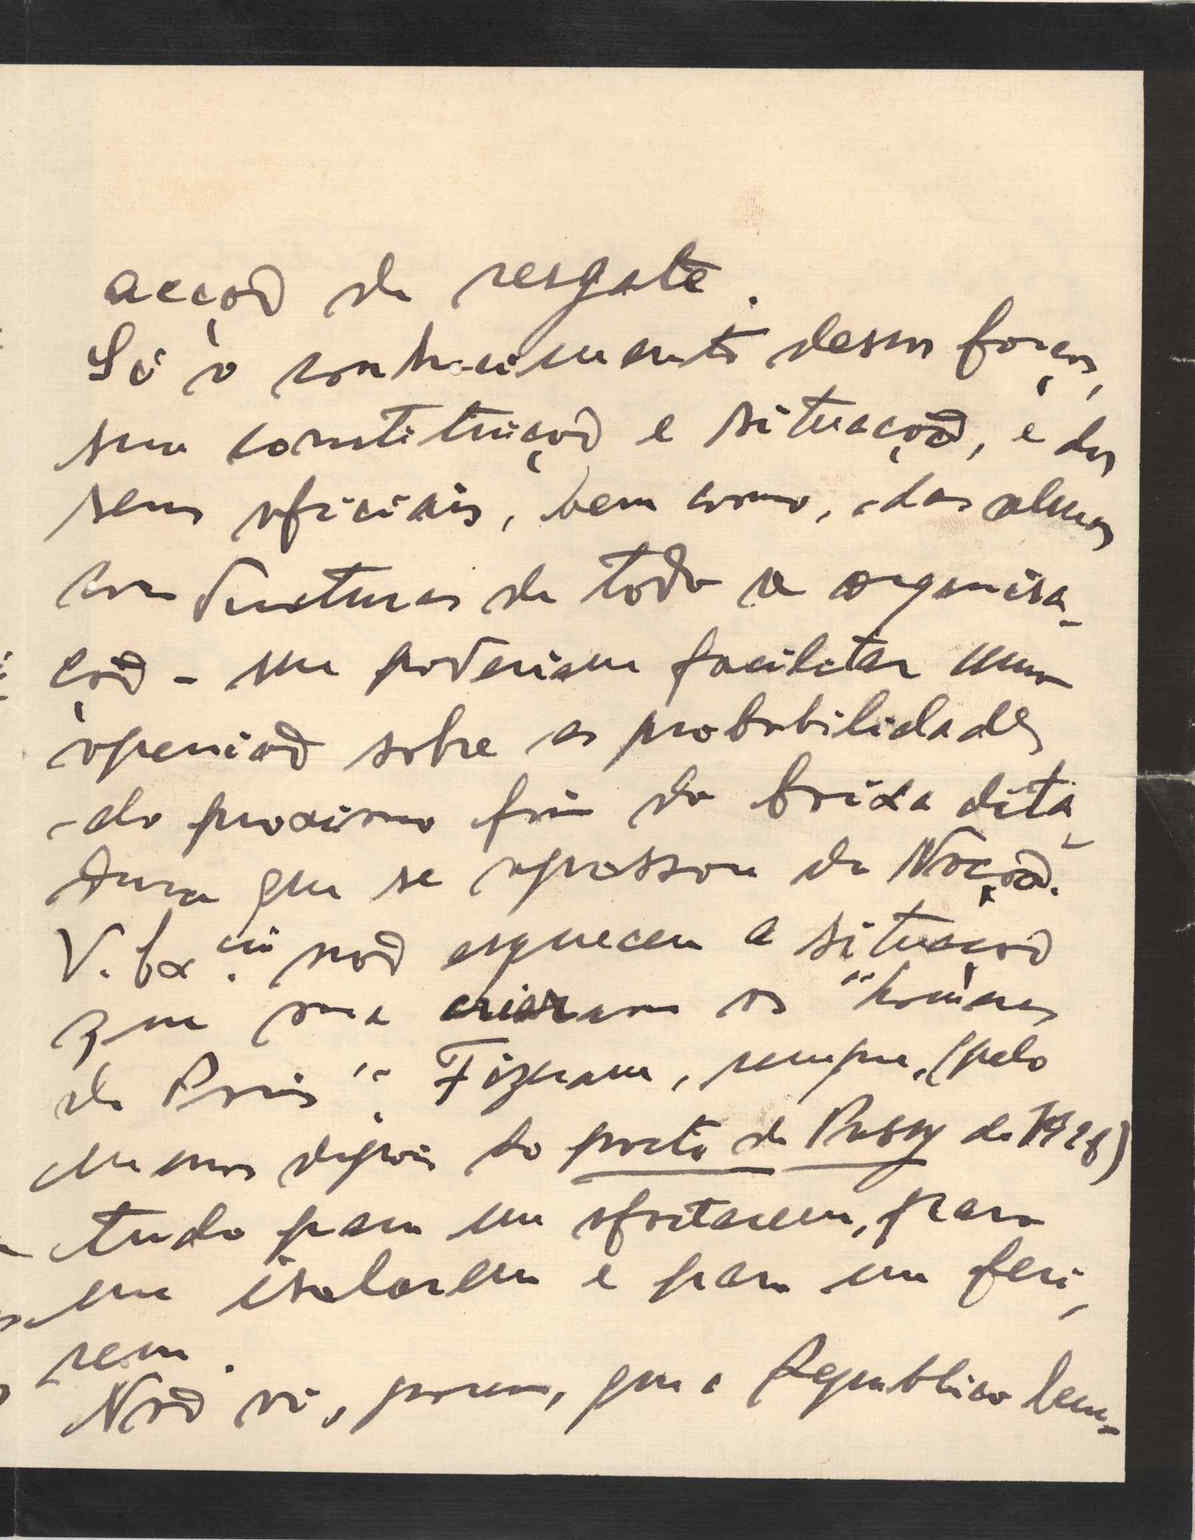 acção de resgate.
Só o conhecimento dessas forças,
sua constituição e situação, e dos
seus oficiais, bem como, das almas
conductoras de toda a organisa-
ção - me poderiam facilitar uma
opinião sobre as probabilidades
do proximo fim da baixa dita-
dura que se apossou da Nação.
V. Ex.cia não esquecem a situação
que me criaram os "homens
de Paris". Fizeram, sempre, (pelo
menos depois do pacto de Passy de 1928)
tudo para me afastarem, para
me isolarem e para me feri-
rem.
Não vi, porem, que a Republica bem-